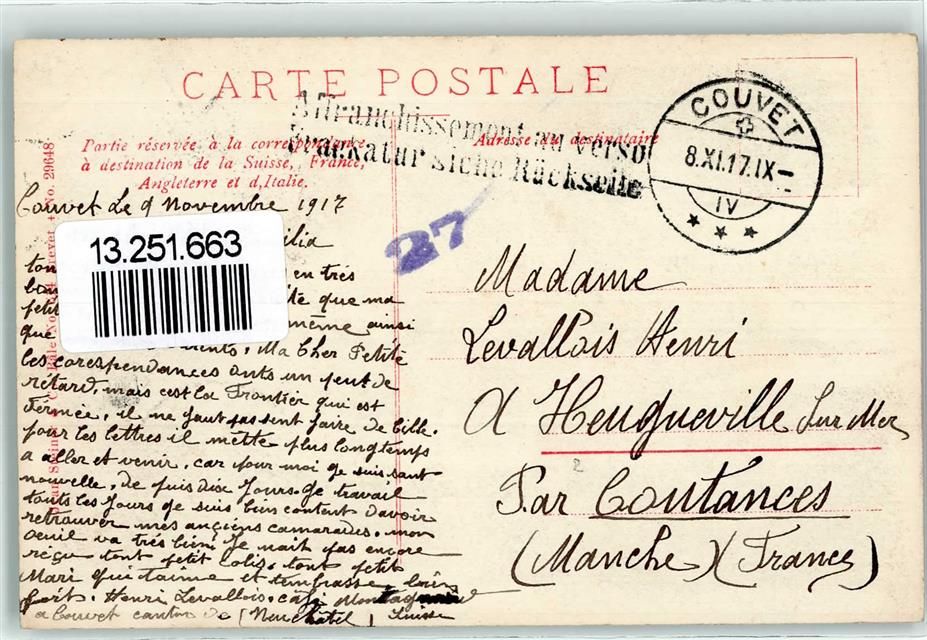 CARTE POSTALE
Affranchissement au verso
Frankatur siehe Rückseite
Partie réservée à la correspondance
à destination de la Suisse, France,
Angleterre et d'Italie.
Adresse du destinataire
COUVET
8.XI.17.IX-
IV
No. 29648
27
13.251.663
Couvet Le 9 Novembre 1917
en très
que ma
petit
que même ainsi
Ma Cher Petite
les corespendances onts un peut de
rétard, mais cest la Frontier qui est
Fermée, il ne faut pas sent faire de bille.
pour les lettres il mette plus longtemps
a aller et venir, car pour moi je suis sant
nouvelle, de puis dix Jours. Je travail
touts les Jours je suis bien content davoir
retrouver mes anciens camarades, mon
oeuil va très bien, Je nait pas encore
reçu tont petit colis, tont petit
Mari qui taime et tembrasse bien
fort. Henri Levallois. café Montagnard
a Couvet canton de (Neuchatel) Suisse
Madame
Levallois Henri
A Heugueville Sur Mer
Par Coutances
(Manche) (France)